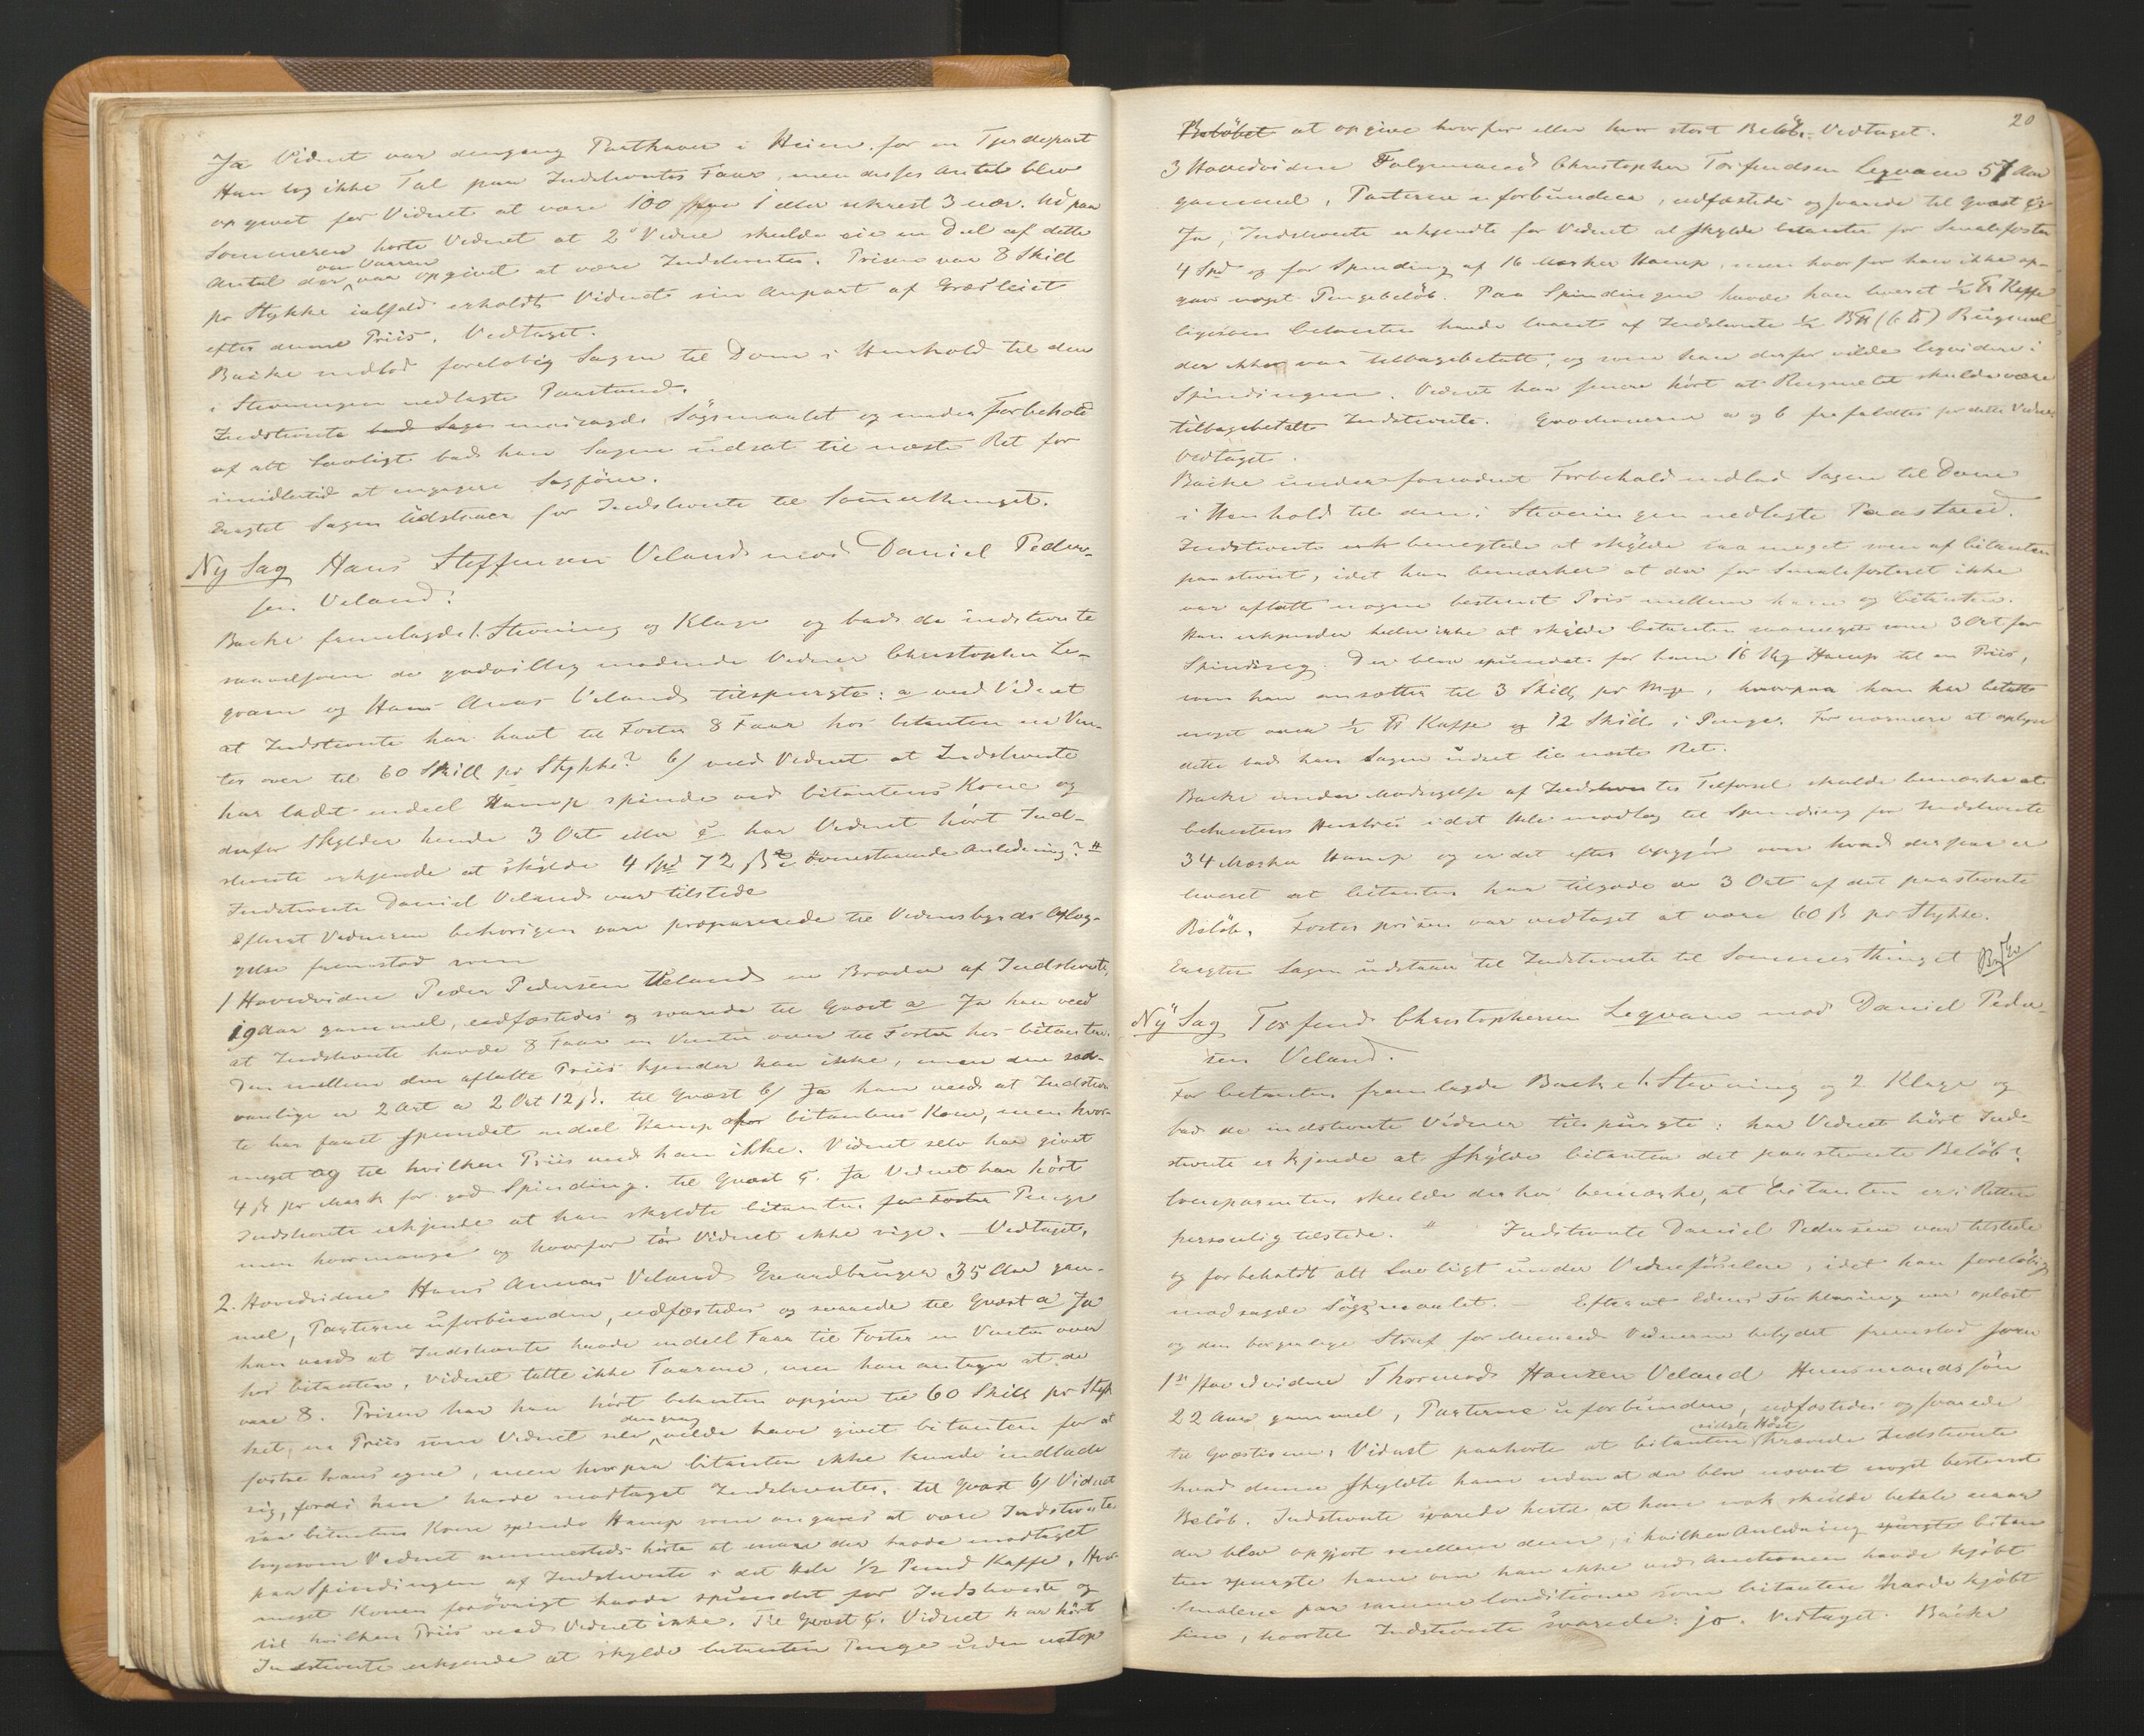 Ja Vidnet var dengang Parthaver i Heien for en Fjerdepart
Han tog ikke Tal paa Indstevntes Faar, men disses Antal blev
opgivet for Vidnet at være 100 paa 1 eller ukrest 3 nær. Ud paa
Sommeren hørte Vidnet at 2det Vidne skulde eie en Deel af dette
Antal der om Vaaren var opgivet at være Indstevntes. Prisen var 8 Skill
pr Stykke ialfald erholdt Vidnet sin Anpart af Græsleiet
efter denne Priis. Vedtaget.
Backe indlod foreløbig Sagen til Dom i Henhold til den
i Stevningen nedlagte Paastand.
Indstevnte bad Sagen modsagde Søgsmaalet og under Forbehold
af alt Lovligt bad han Sagen udsat til næste Ret for
imidlertid at engagere Sagfører.
Eragtet Sagen udstaaer for Indstevnte til Sommerthinget.
Ny Sag Hans Steffensen Veland mod Daniel Peder-
sen Veland.
Backe fremlagde 1. Stevning og Klage og bad de indstevnte
saavelsom de godvillig mødende Vidner Christopher Le-
qvam og Hans Aneas Veland tilspurgte: a ved Vidnet
at Indstevnte har havt til Foster 8 Faar hos Citanten en Vin-
ter over til 60 Skill pr Stykke? b/ ved Vidnet at Indstevnte
har ladet endeel Hamp spinde ved Citantens Kone og
derfor skylder hende 3 Ort eller c har Vidnet hørt Ind-
stevnte erkjende at skylde 4 Spd 72 ß i ovenstaaende Anledning?
Indstevnte Daniel Veland var tilstede
Efterat Vidnerne behørigen vare præparerede til Vidnesbyrds Aflæg-
gelse fremstod som
1 Hovedvidne Peder Pedersen Veland en Broder af Indstevnte,
19 Aar gammel, edfæstedes og svarede til Qvæst a Ja han veed
at Indstevnte havde 8 Faar en Vinter over til Foster hos Citanten.
Den mellem dem aftalte Priis kjender han ikke, men den sæd-
vanlige er 2 Ort a 2 Ort 12 ß. til Qvæst b/ Ja han veed at Indstevn
te har faaet spundet endeel Hamp for Citantens Kone, men hvor
meget og til hvilken Priis veed han ikke. Vidnet selv har givet
4 ß pr Mark for god Spinding. til Qvæst c. Ja Vidnet har hørt
Indstevnte erkjende at han skyldte Citanten for Foster Penge
men hvormange og hvorfor tør Vidnet ikke sige. – Vedtaget.
2. Hovedvidne Hans Aneas Veland Gaardbruger 35 Aar gam-
mel, Parterne uforbunden, edfæstedes og svarede til Qvæst a Ja
han veed at Indstevnte havde endeel Faar til Foster en Vinter over
hos Citanten. Vidnet talte ikke Faarene, men han antager at de
vare 8. Prisen har han hørt Citanten opgive til 60 Skill pr Styk
ket, en Priis som Vidnet selv dengang vilde have givet Citanten for at
fostre hans egne, men hvorpaa Citanten ikke kunde indlade
sig, fordi han havde modtaget Indstevntes. til Qvæst b/ Vidnet
saa Citantens Kone spinde Hamp som angaves at være Indstevntes
ligesom Vidnet sammesteds hørte at man der havde modtaget
paa Spindingen af Indstevnte i det Hele 1/2 Pund Kaffe. Hvor-
meget Konen forøvrigt havde spundet for Indstevnte og
til hvilken Priis veed Vidnet ikke. Til Qvæst c. Vidnet har hørt
Indstevnte erkjende at skylde Citanten Penge uden netop
20
Beløbet at opgive hvorfor eller hvor stort Beløb. Vedtaget.
3 Hovedvidne Følgemand Christopher Torfindsen Leqvam 57 Aar
gammel, Parterne uforbunden, edfæstedes og svarede til Qvæst c
Ja, Indstevnte erkjendte for Vidnet at skylde Citanten for Smalefoster
4 Spd og for Spinding af 16 Marker Hamp, men hvorfor han ikke op-
gav noget Pengebeløb. Paa Spindingen havde han leveret 1/2 ℔ Kaffe
ligesom Citanten havde laant af Indstevnte 1/2 B℔ (6 ℔) Rugmel
der ikke var tilbagebetalt, og som han derfor vilde liqvidere i
Spindingen. Vidnet har senere hørt at Rugmelet skulde være
tilbagebetalt Indstevnte. Qvæstionerne a og b frafaldtes for dette Vidne
Vedtaget.
Backe under fornødent Forbehold indlod Sagen til Dom
i Henhold til den i Stevningen nedlagte Paastand.
Indstevnte benegtede at skylde saa meget som af Citanten
paastevnt, idet han bemærker at der for Smalefosteret ikke
var aftalt nogen bestemt Pris mellem ham og Citanten.
Han erkjender heller ikke at skylde Citanten saameget som 3 Ort for
Spinding. Der blev spundet for ham 16 Mkr Hamp til en Priis,
som han ansætter til 3 Skill pr Mrk, hvorpaa han har betalt
noget over 1/2 ℔ Kaffe og 12 Skill i Penge. For nærmere at oplyse
dette bad han Sagen udsat til næste Ret.
Backe under Modsigelse af Indstevntes Tilførsel skulde bemærke at
Citantens Hustru i det Hele modtog til Spinding for Indstevnte
34 Marker Hamp og er det efter Opgjør over hvad derpaa er
leveret at Citanten har tilgode de 3 Ort af det paastevnte
Beløb. Fosterprisen var vedtaget at være 60 ß pr Stykke.
Eragtet Sagen udstaaer til Indstevnte til Sommerthinget
Ny Sag Torfind Christophersen Leqvam mod Daniel Peder-
sen Veland.
For Citanten fremlagde Backe 1. Stevning og 2. Klage og
bad de indstevnte Vidner tilspurgte: har Vidnet hørt Ind-
stevnte erkjende at skylde Citanten det paastevnte Beløb?
Comparenten skulde derhos bemærke, at Citanten er i Retten
personlig tilstede. Indstevnte Daniel Pedersen var tilstede
og forbeholdt alt Lovligt under Vidneførselen, idet han foreløbig
modsagde Søgsmaalet. – Efterat Edens Forklaring var oplæst
og den borgerlige Straf for Meeneed Vidnerne betydet fremstod som
1ste Hovedvidne Thormod Hansen Veland Huusmandssøn
22 Aar gammel, Parterne uforbunden, edfæstedes og svarede
til Qvæstionen: Vidnet paahørte at Citanten sidste Høst krævede Indstevnte
hvad denne skyldte ham uden at der blev nævnt noget bestemt
Beløb. Indstevnte svarede hertil at han nok skulde betale naar
der blev opgjort mellem dem, i hvilken Anledning spurgte Citan
ten spurgte ham om han ikke ved Auctionen havde kjøbt
Smalene paa samme Conditioner som Citanten havde kjøbt
sine, hvortil Indstevnte svarede: jo. Vedtaget. Backe